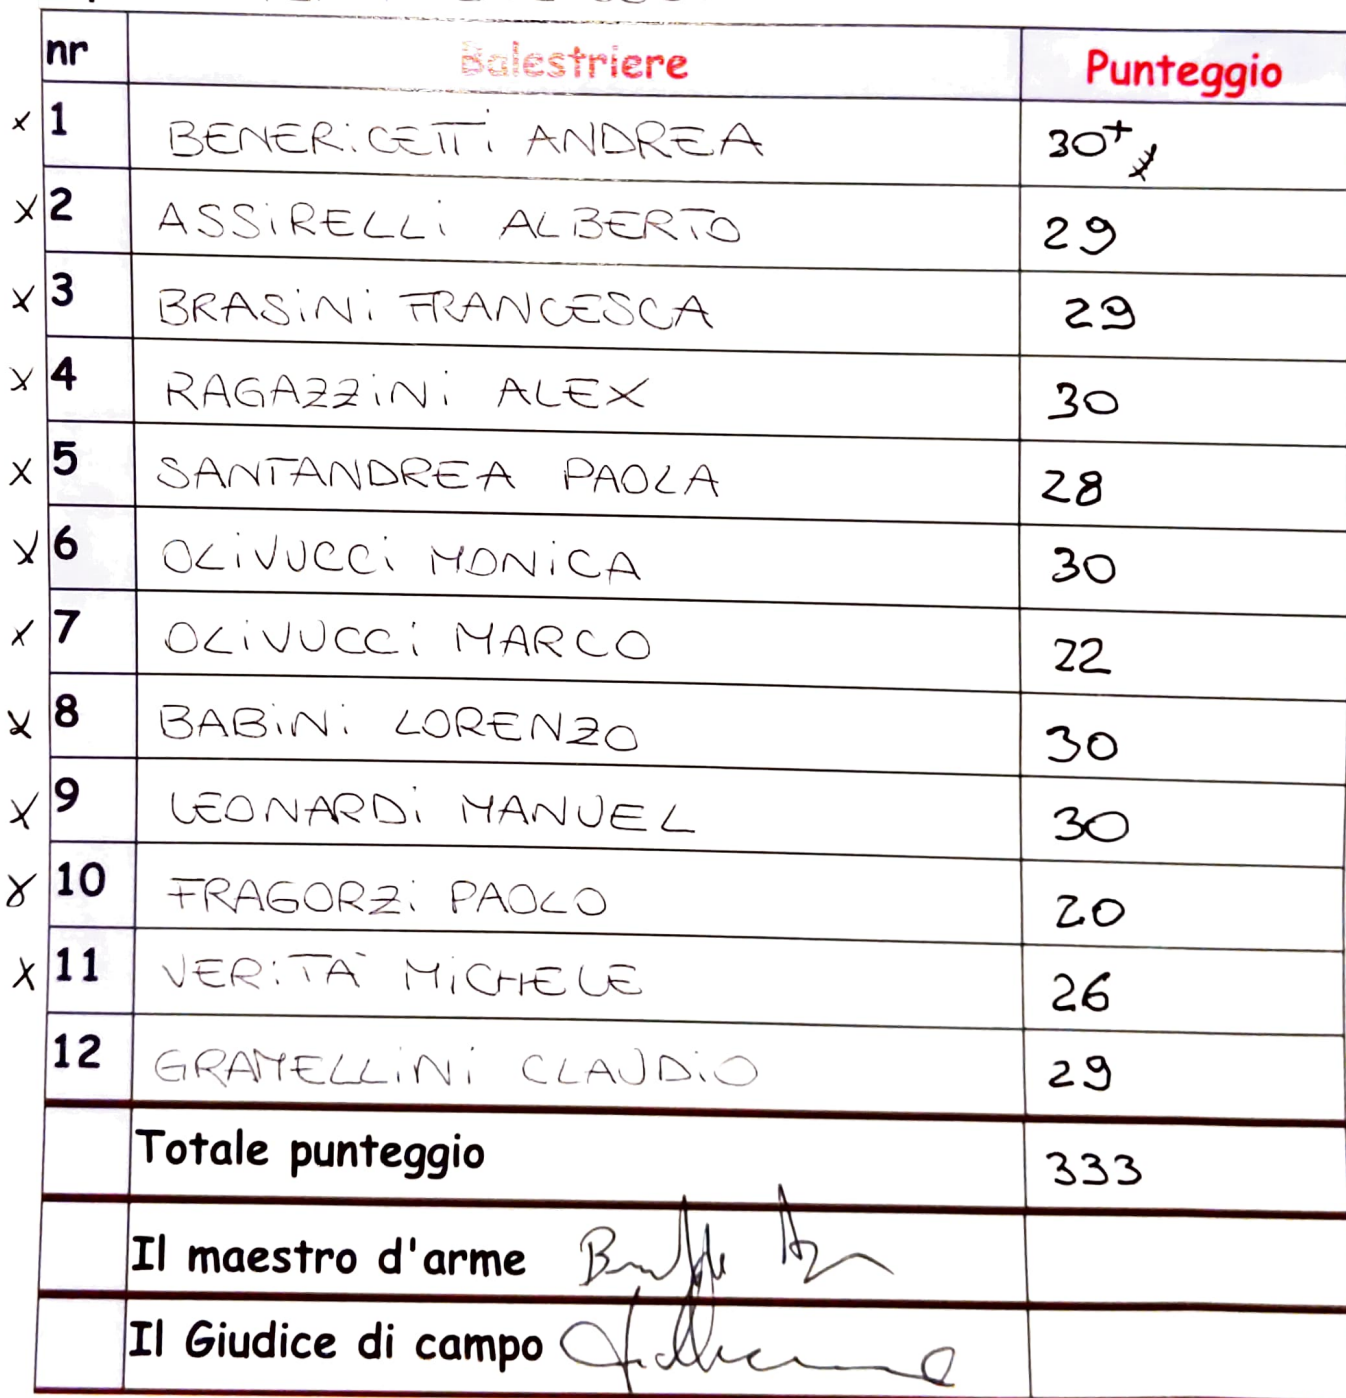 nr Balestriere Punteggio
x 1 BENERiCETTi ANDREA 30+
x 2 ASSiRELLi ALBERTO 29
x 3 BRASiNi FRANCESCA 29
x 4 RAGAZZiNi ALEX 30
x 5 SANTANDREA PAOLA 28
x 6 OLiVUCCi MONiCA 30
x 7 OLiVUCCi MARCO 22
x 8 BABiNi LORENZO 30
x 9 LEONARDi MANUEL 30
x 10 FRAGORZi PAOLO 20
x 11 VERiTA' MiCHELE 26
12 GRAMELLiNi CLAUDiO 29
Totale punteggio 333
Il maestro d'arme
Il Giudice di campo